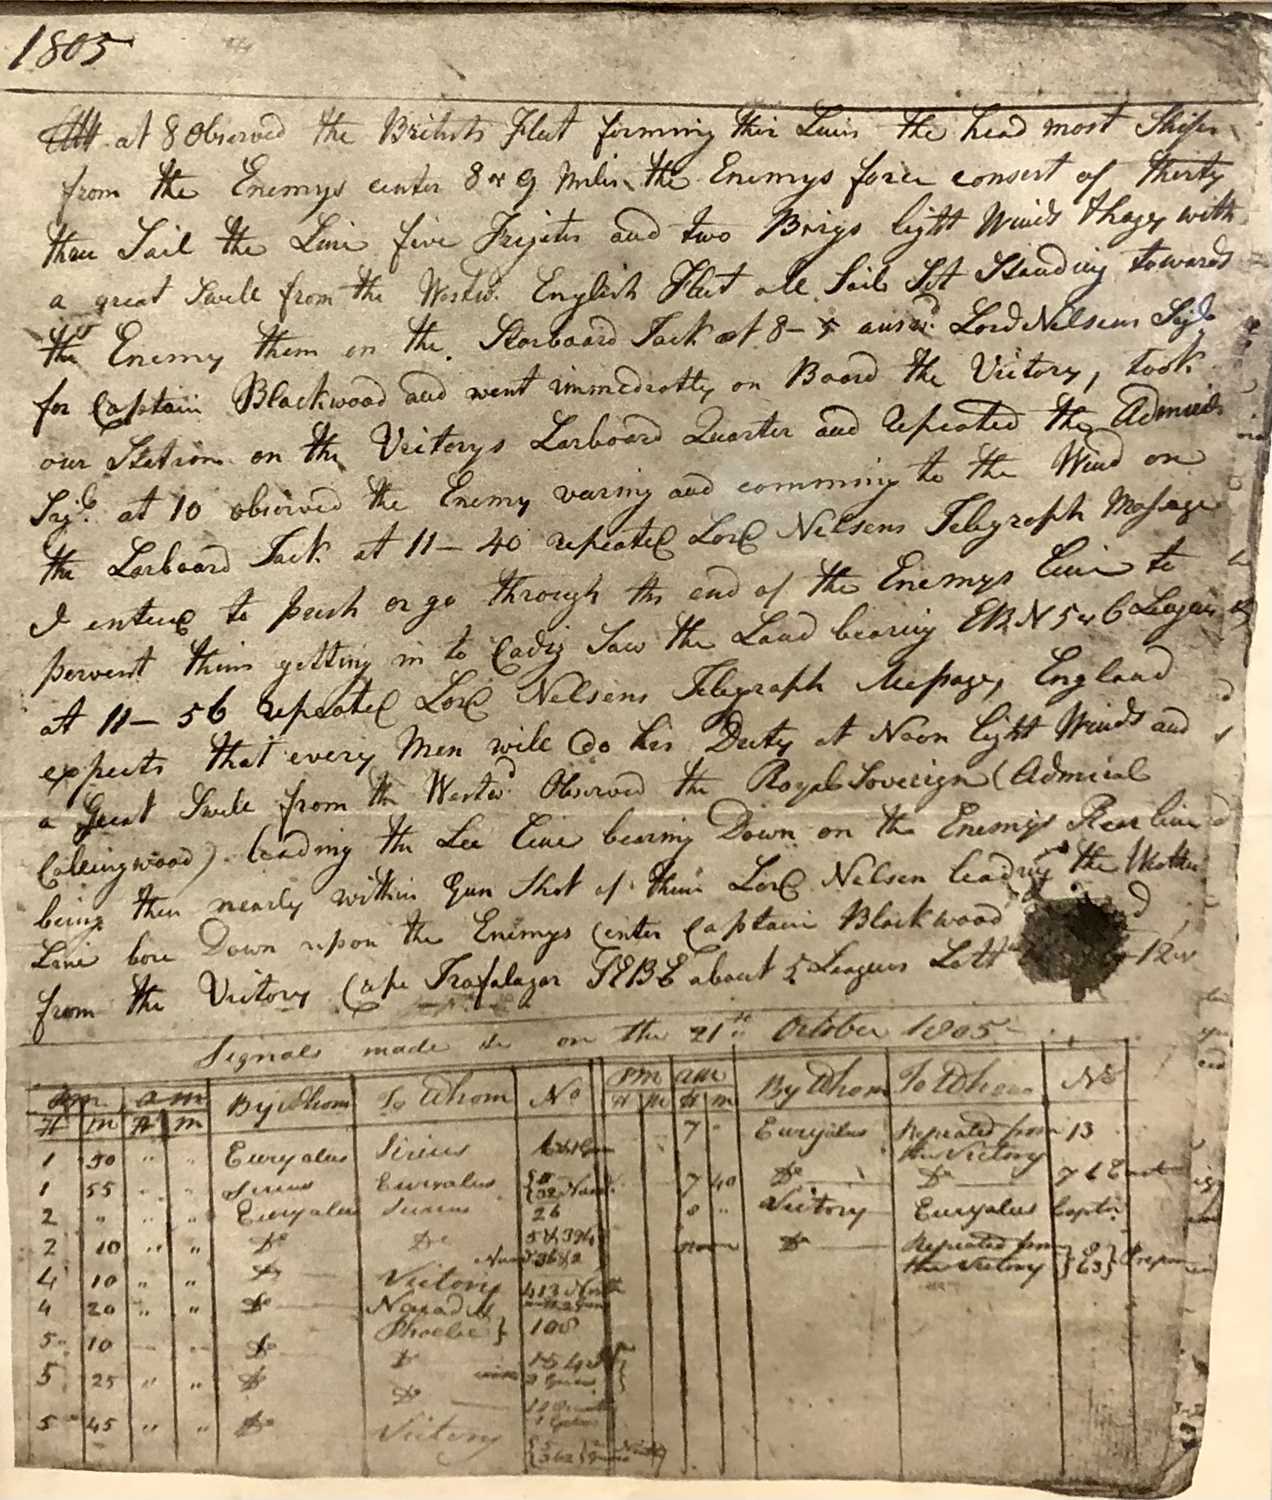 1805
at 8 Observed the British Fleet forming their Line the head most Ships
from the Enemys center 8 or 9 Miles the Enemys force consert of Thirty
three Sail the Line five Frigates and two Brigs light Winds & hazy with
a great Swell from the Westwd. English Fleet all Sail Set Standing towards
the Enemy them on the Starboard Tack at 8- answd. Lord Nelsens Sigl.
for Captain Blackwood and went immedratly on Board the Victory, took
our Station on the Victorys Larboard Quarter and repeated the Admirals
Sigl. at 10 observed the Enemy waring and comming to the Wind on
the Larboard Tack. at 11-40 repeated Lord Nelsens Telegraph Message
I entend to push or go through the end of the Enemys Line to
pervent them getting in to Cadiz Saw the Land bearing EBN 5 or 6 Leagues
at 11-56 repeated Lord Nelsens Telegraph Message, England
expects that every Men will do his Duty at Noon light Winds and
a Great Swell from the Westwd. Observed the Royal Sovereign (Admiral
Collingwood) leading the Lee Line bearing Down on the Enemys Rear line
being then nearly within Gun Shot of them Lord Nelsen leading the Wether
Line bore Down upon the Enemys Center Captain Blackwood
from the Victory Cape Trafalagar SEBE about 5 Leagues
Signals made &c on the 21st October 1805
pm am By Whom To Whom No pm am By Whom To Whom No
H m H m H m H m
1 50 " " Euryalus Sirius 7 " Euryalus Repeated from the Victory 13
1 55 " " Sirius Euryalus 7 40 Do Do 76 East
2 " " " Euryalus Sirius 26 8 " Victory Euryalus Captn
2 10 " " Do Do noon Do Repeated from the Victory 8 63 Prepare
4 10 " " Do Victory 413 North
4 20 " " Do Naiad &
Phoebe } 108
5 10 Do Do
5 25 " " Do Do
5 45 " " Do Victory